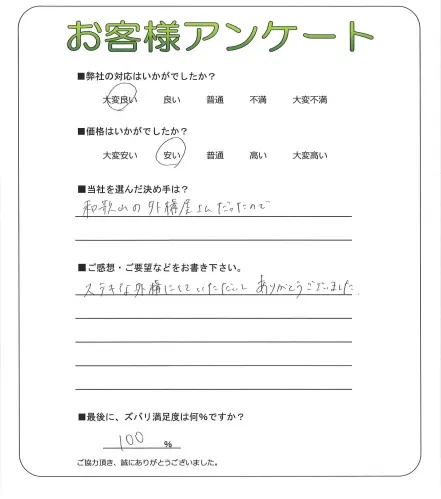 お客様アンケート
■弊社の対応はいかがでしたか？
大変良い 良い 普通 不満 大変不満
■価格はいかがでしたか？
大変安い 安い 普通 高い 大変高い
■当社を選んだ決め手は？
和歌山の外構屋さんだったので
■ご感想・ご要望などをお書き下さい。
ステキな外構にしていただいて ありがとうございました.
■最後に、ズバリ満足度は何％ですか？
100 %
ご協力頂き、誠にありがとうございました。